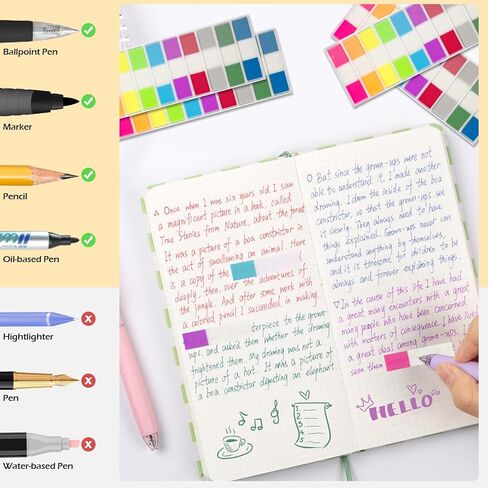 Ballpoint Pen
Marker
Pencil
Oil-based Pen
Hightlighter
Pen
Water-based Pen
Once when I was six years old I saw
a magnificent picture in a book, called
True Stories from Nature, about the forest
It was a picture of a boa constrictor in
the act of swallowing an animal. Here
is a copy of the
deeply, then, over the adventures of
the jungle. And after some work with
a colored pencil I succeeded in making
terpiece to the grown
ups, and asked them whether the drawing
frightened them. My drawing was not a
picture of a hat. It was a picture of a
boa constrictor digesting an elephant.
But since the grown-ups were not
able to understand it. I made another
drawing: I drew the inside of the boa
constrictor, so that the grown-ups see
it clearly. They always need to have
things explained. Grown-ups never can
understand anything by themselves,
and it is tiresome for children to be
always and forever explaining things.
In the course of this life I have had
a great many encounters with a great
many people who have been concerned
with matters of consequence. I have lived
a great deal among grown-ups.
seen them
HELLO